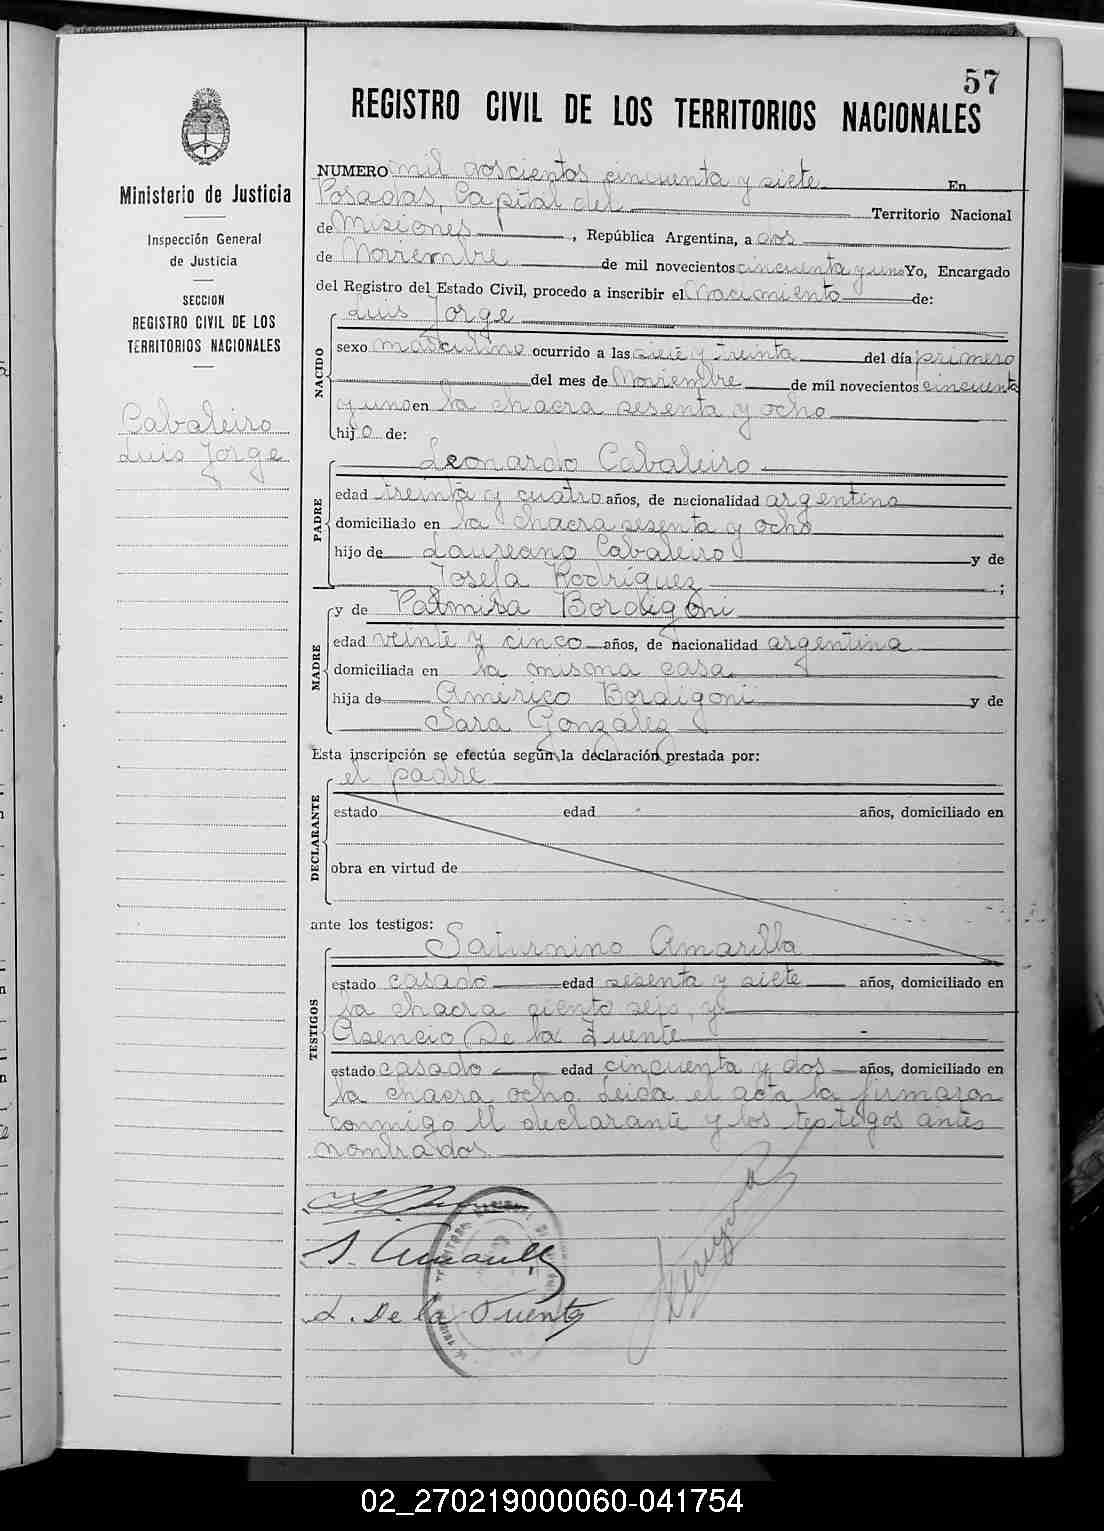 57
REGISTRO CIVIL DE LOS TERRITORIOS NACIONALES
Ministerio de Justicia
Inspección General
de Justicia
SECCION
REGISTRO CIVIL DE LOS
TERRITORIOS NACIONALES
Cabaleiro
Luis Jorge
NUMERO mil doscientos cincuenta y siete En
Posadas, Capital del Territorio Nacional
de Misiones, República Argentina, a dos
de Noviembre de mil novecientos cincuenta y uno Yo, Encargado
del Registro del Estado Civil, procedo a inscribir el Nacimiento de:
NACIDO
Luis Jorge
sexo masculino ocurrido a las siete y treinta del día primero
del mes de Noviembre de mil novecientos cincuenta
y uno en la chacra sesenta y ocho
hijo de:
PADRE
Leonardo Cabaleiro
edad treinta y cuatro años, de nacionalidad argentino
domiciliado en la chacra sesenta y ocho
hijo de Laureano Cabaleiro y de
Josefa Rodríguez ;
MADRE
y de Palmira Bordigoni
edad veinte y cinco años, de nacionalidad argentina
domiciliada en la misma casa
hija de Américo Bordigoni y de
Sara Gonzalez
Esta inscripción se efectúa según la declaración prestada por:
DECLARANTE
el padre
estado edad años, domiciliado en
obra en virtud de
ante los testigos:
TESTIGOS
Saturnino Amarilla
estado casado edad sesenta y siete años, domiciliado en
la chacra ciento seis, y
Asencio De la Fuente
estado casado edad cincuenta y dos años, domiciliado en
la chacra ocho. Leida el acta la firmaron
conmigo el declarante y los testigos antes
nombrados
S. Amarilla
A. De la Fuente
02_270219000060-041754